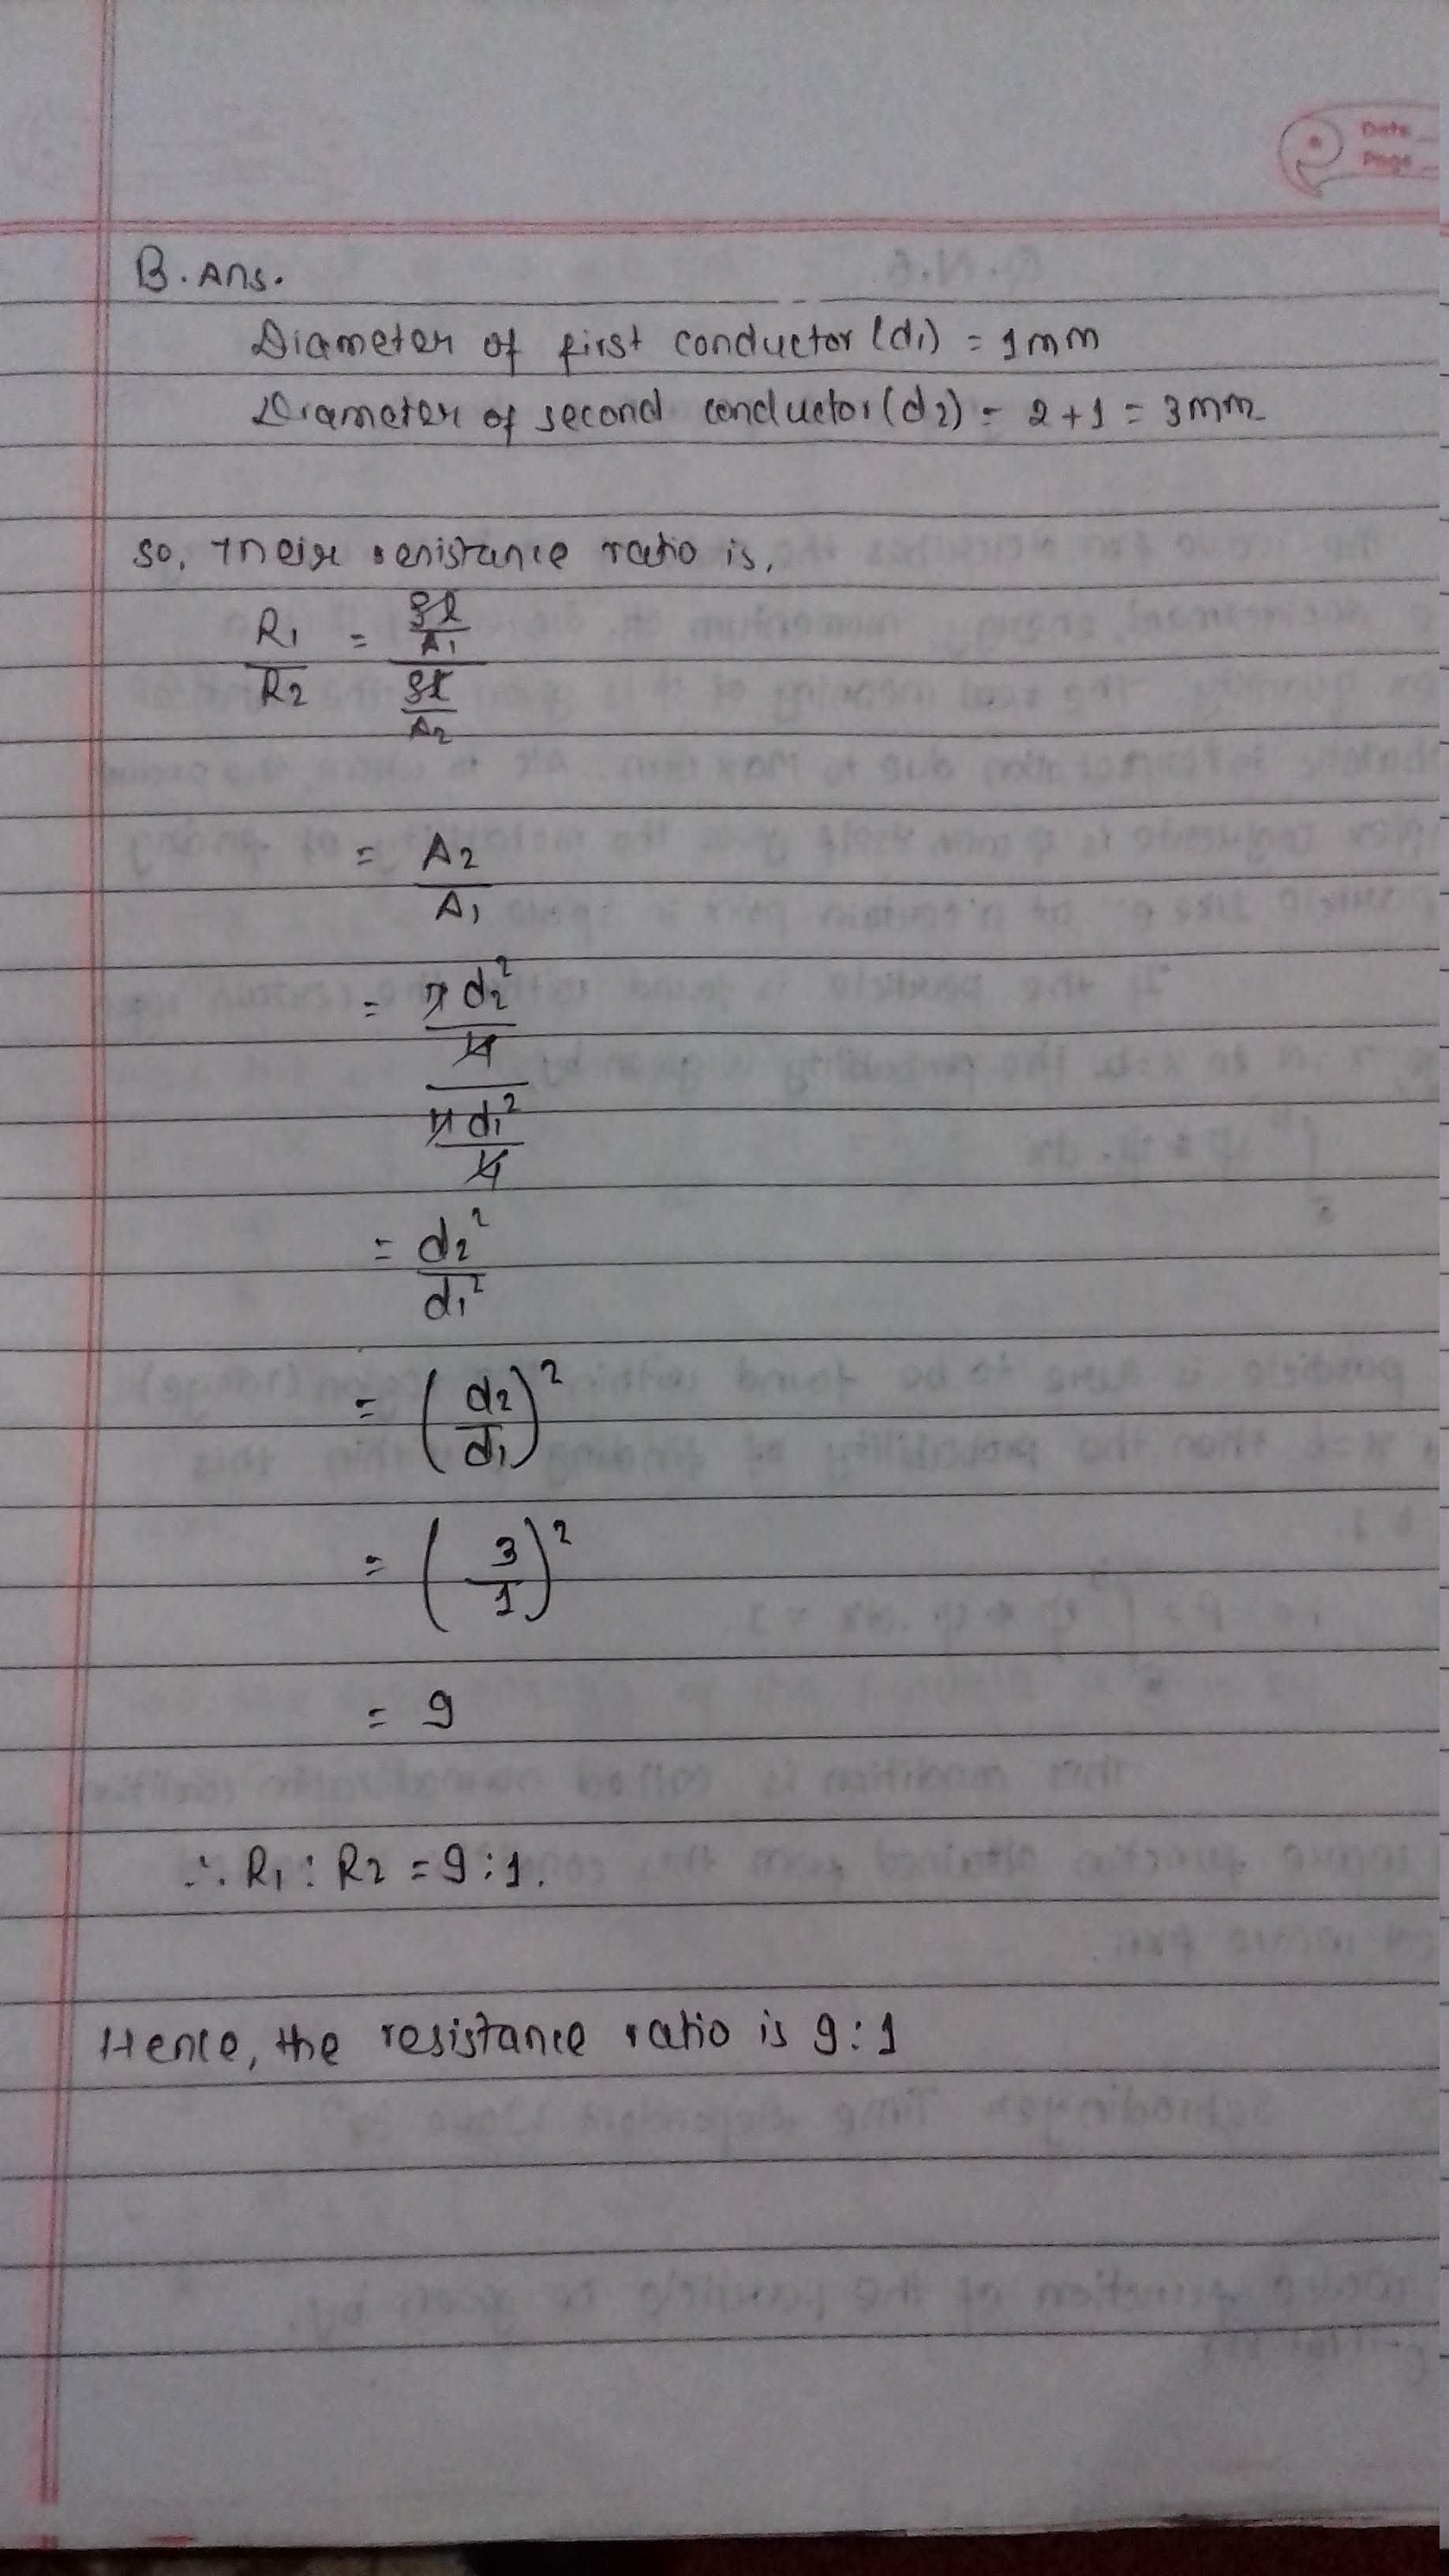 Date
Page
B. Ans.
Diameter of first conductor (d1) = 1mm
Diameter of second conductor (d2) = 2+1 = 3mm
so, their resistance ratio is,
R1/R2 = (ρl/A1)/(ρl/A2)
= A2/A1
= (πd2²/4)/(πd1²/4)
= d2²/d1²
= (d2/d1)²
= (3/1)²
= 9
∴ R1 : R2 = 9 : 1.
Hence, the resistance ratio is 9 : 1